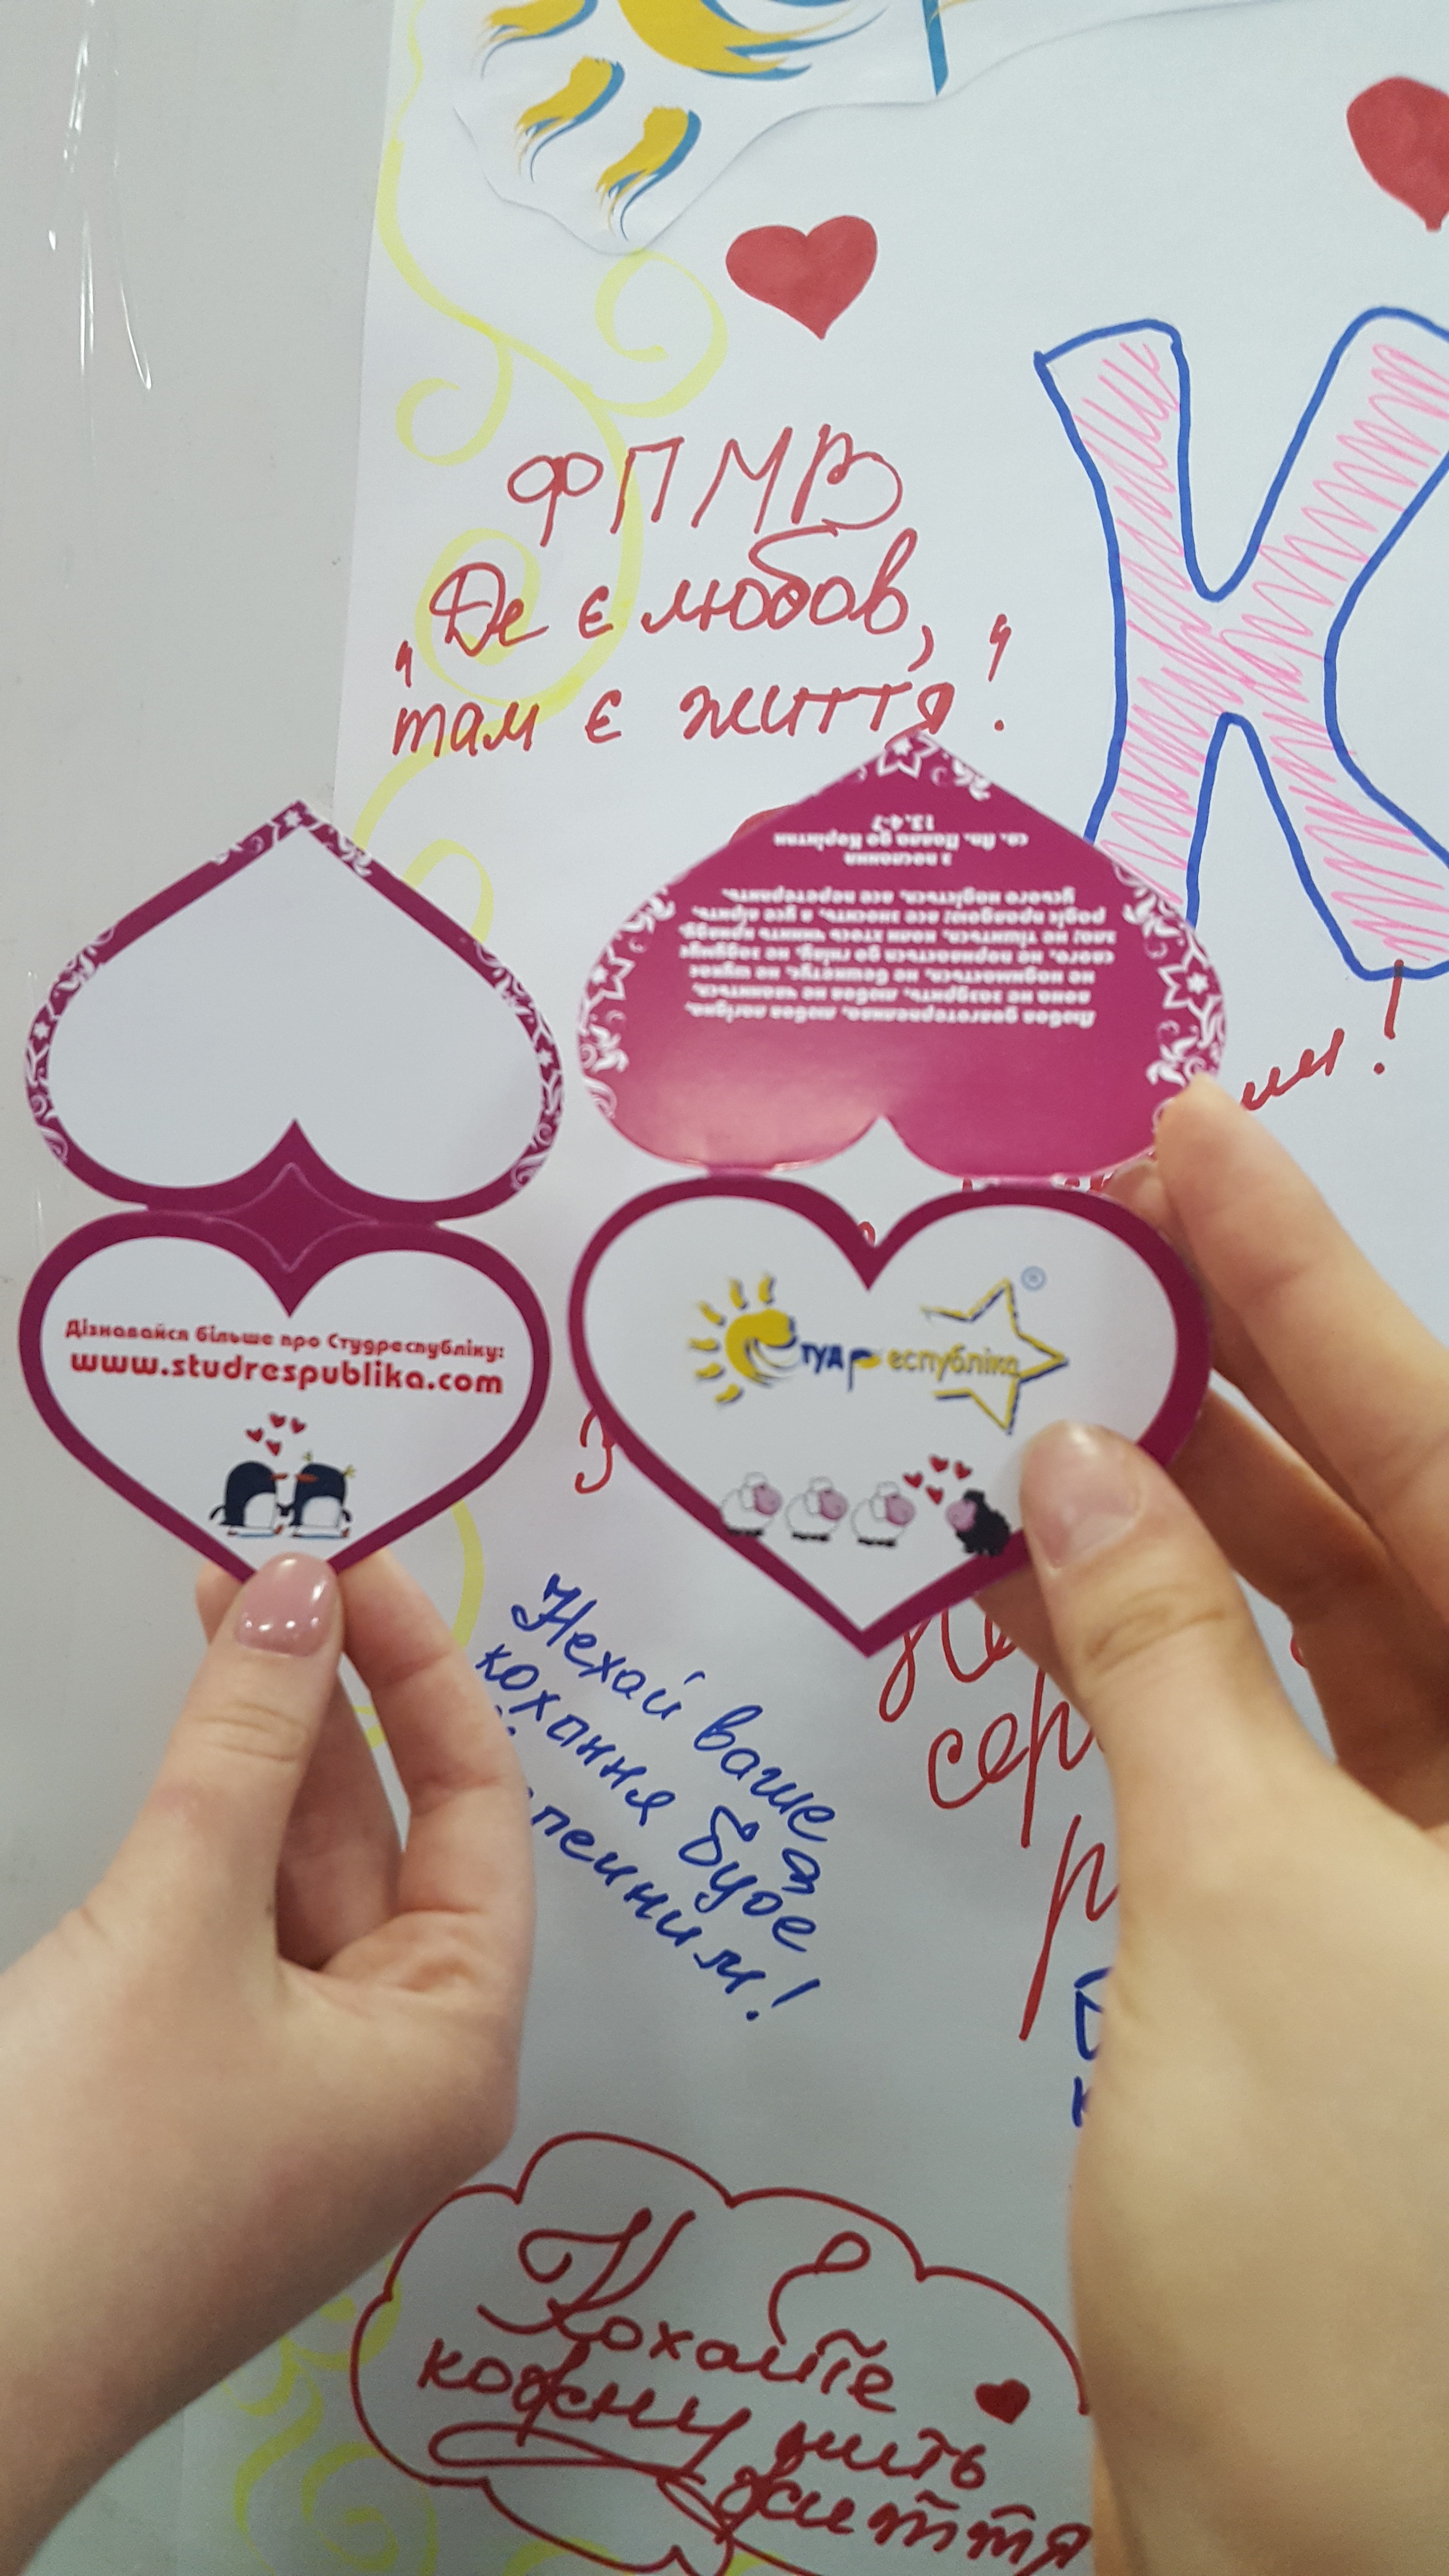 ФПМВ
„Де є любов,
там є життя"!
К
ми!
з послання
св. Ап. Павла до Коринтян
13.4-7
Любов довготерпелива, любов лагідна,
вона не заздрить, любов не чваниться,
не надимається, не бешкетує, не шукає
свого, не поривається до гніву, не задумує
зла; не тішиться, коли хтось чинить кривду,
радіє правдою; все зносить, в усе вірить,
усього надіється, все перетерпить.
Дізнавайся більше про Студреспубліку:
www.studrespublika.com
Студреспубліка
®
З
Нехай ваше
кохання буде
сер
Кохайте
кожну мить
життя